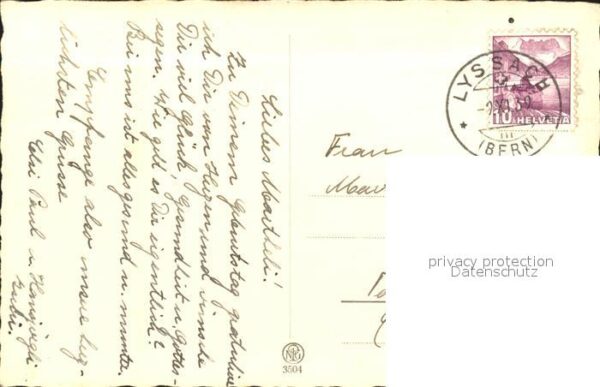 Liebes Martheli!
Zu Deinem Geburtstag gratuliere
ich Dir von Herzen und wünsche
Dir viel Glück, Gesundheit u. Gottes-
segen. Wie geht es Dir eigentlich?
Bei uns ist alles gesund u. munter.
Empfange also meine herz-
lichsten Grüsse
Paul u.
Frau
LYSSACH
(BERN)
10 HELVETIA
privacy protection
Datenschutz
3504